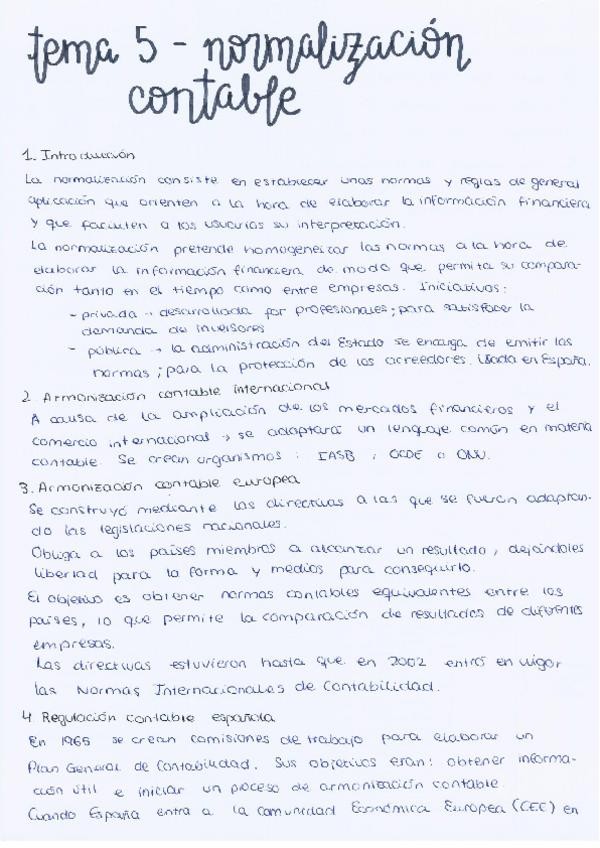 tema 5 - normalización
contable
1. Introducción
La normalización consiste en establecer unas normas y reglas de general
aplicación que orienten a la hora de elaborar la información financiera
y que faciliten a los usuarios su interpretación.
La normalización pretende homogeneizar las normas a la hora de
elaborar la información financiera de modo que permita su compara-
ción tanto en el tiempo como entre empresas. Iniciativas:
- privada → desarrollada por profesionales; para satisfacer la
demanda de inversores
- pública → la administración del Estado se encarga de emitir las
normas; para la protección de los acreedores. Usada en España.
2 Armonización contable internacional
A causa de la ampliación de los mercados financieros y el
comercio internacional → se adaptará un lenguaje común en materia
contable. Se crean organismos: IASB, OCDE o ONU.
3. Armonización contable europea
Se construyó mediante las directivas a las que se fueron adaptan-
do las legislaciones nacionales.
Obliga a los países miembros a alcanzar un resultado, dejándoles
libertad para la forma y medios para conseguirlo.
El objetivo es obtener normas contables equivalentes entre los
países, lo que permite la comparación de resultados de diferentes
empresas.
Las directivas estuvieron hasta que en 2002 entró en vigor
las Normas Internacionales de Contabilidad.
4 Regulación contable española
En 1965 se crean comisiones de trabajo para elaborar un
Plan General de Contabilidad. Sus objetivos eran: obtener informa-
ción útil e iniciar un proceso de armonización contable.
Cuando España entra a la Comunidad Económica Europea (CEE) en